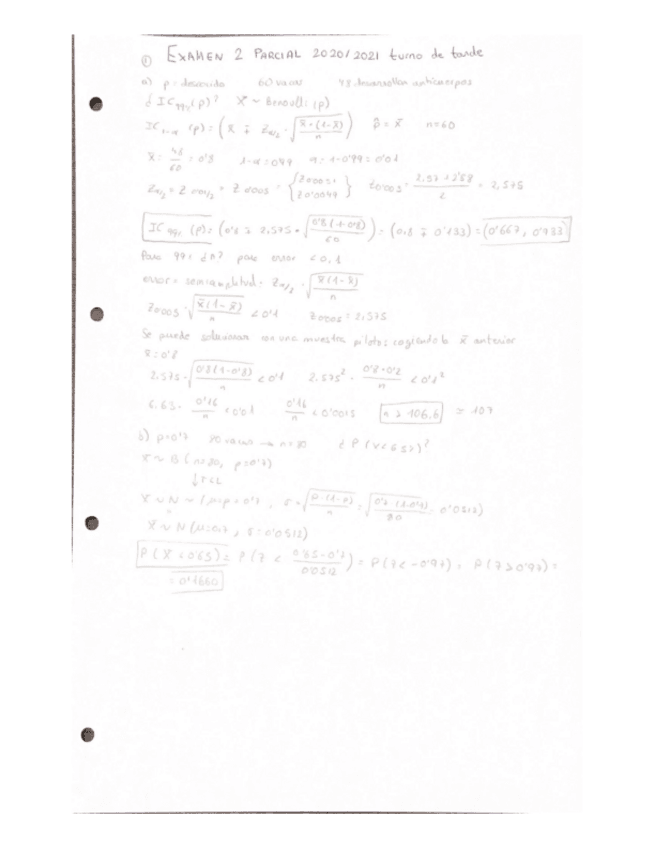 ① EXAMEN 2 PARCIAL 2020/2021 turno de tarde
a) p = desconocido 60 vacas 48 desarrollan anticuerpos
¿IC99%(p)? X ~ Bernoulli (p)
IC1-α (p) = (x̄ ∓ Zα/2 · √(x̄·(1-x̄)/n)) p̂ = x̄ n=60
x̄ = 48/60 = 0'8 1-α = 0'99 α = 1-0'99 = 0'01
Zα/2 = Z0'01/2 = Z0'005 = {Z0'0051 Z0'0049} Z0'005 = (2.57 + 2'58)/2 = 2,575
IC99% (p) = (0'8 ∓ 2.575 · √(0'8(1-0'8)/60)) = (0.8 ∓ 0'133) = (0'667, 0'933)
Para 99% ¿n? para error < 0,1
error = semiamplitud = Zα/2 · √(x̄(1-x̄)/n)
Z0'005 · √(x̄(1-x̄)/n) < 0'1 Z0'005 = 2.575
Se puede solucionar con una muestra piloto: cogiendo la x̄ anterior
x̄ = 0'8
2.575 · √(0'8(1-0'8)/n) < 0'1 2.575² · 0'8·0'2/n < 0'1²
6.63 · 0'16/n < 0'01 0'16/n < 0'0015 n > 106.6 ≃ 107
b) p=0'7 80 vacas → n=80 ¿P(x̄<0'65)?
X ~ B (n=80, p=0'7)
↓TCL
X̄ ~ N ~ (μ=p=0'7, σ=√(p·(1-p)/n) = √(0'7·(1-0'7)/80) = 0'0512)
X̄ ~ N (μ=0.7, σ=0'0512)
P(X̄<0'65) = P(Z < (0'65-0'7)/0'0512) = P(Z<-0'97) = P(Z>0'97) =
= 0'1660